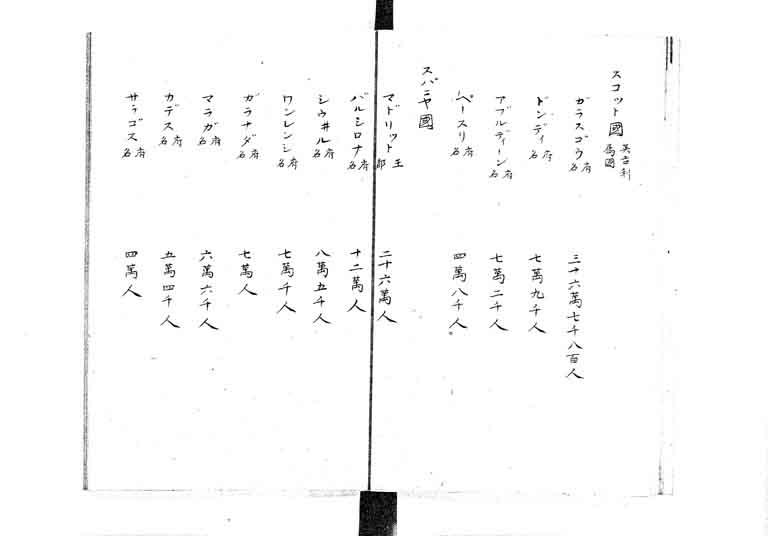 スコット國 英吉利属國
ガラスゴウ 府名 三十六萬七千八百人
ドンディ 府名 七萬九千人
アブルディーン 府名 七萬二千人
ペースリ 府名 四萬八千人
スパニヤ國
マドリット 王都 二十六萬人
バルシロナ 府名 十二萬人
シウ井ル 府名 八萬五千人
ワンレンシ 府名 七萬千人
ガラナダ 府名 七萬人
マラガ 府名 六萬六千人
カデス 府名 五萬四千人
サラゴス 府名 四萬人